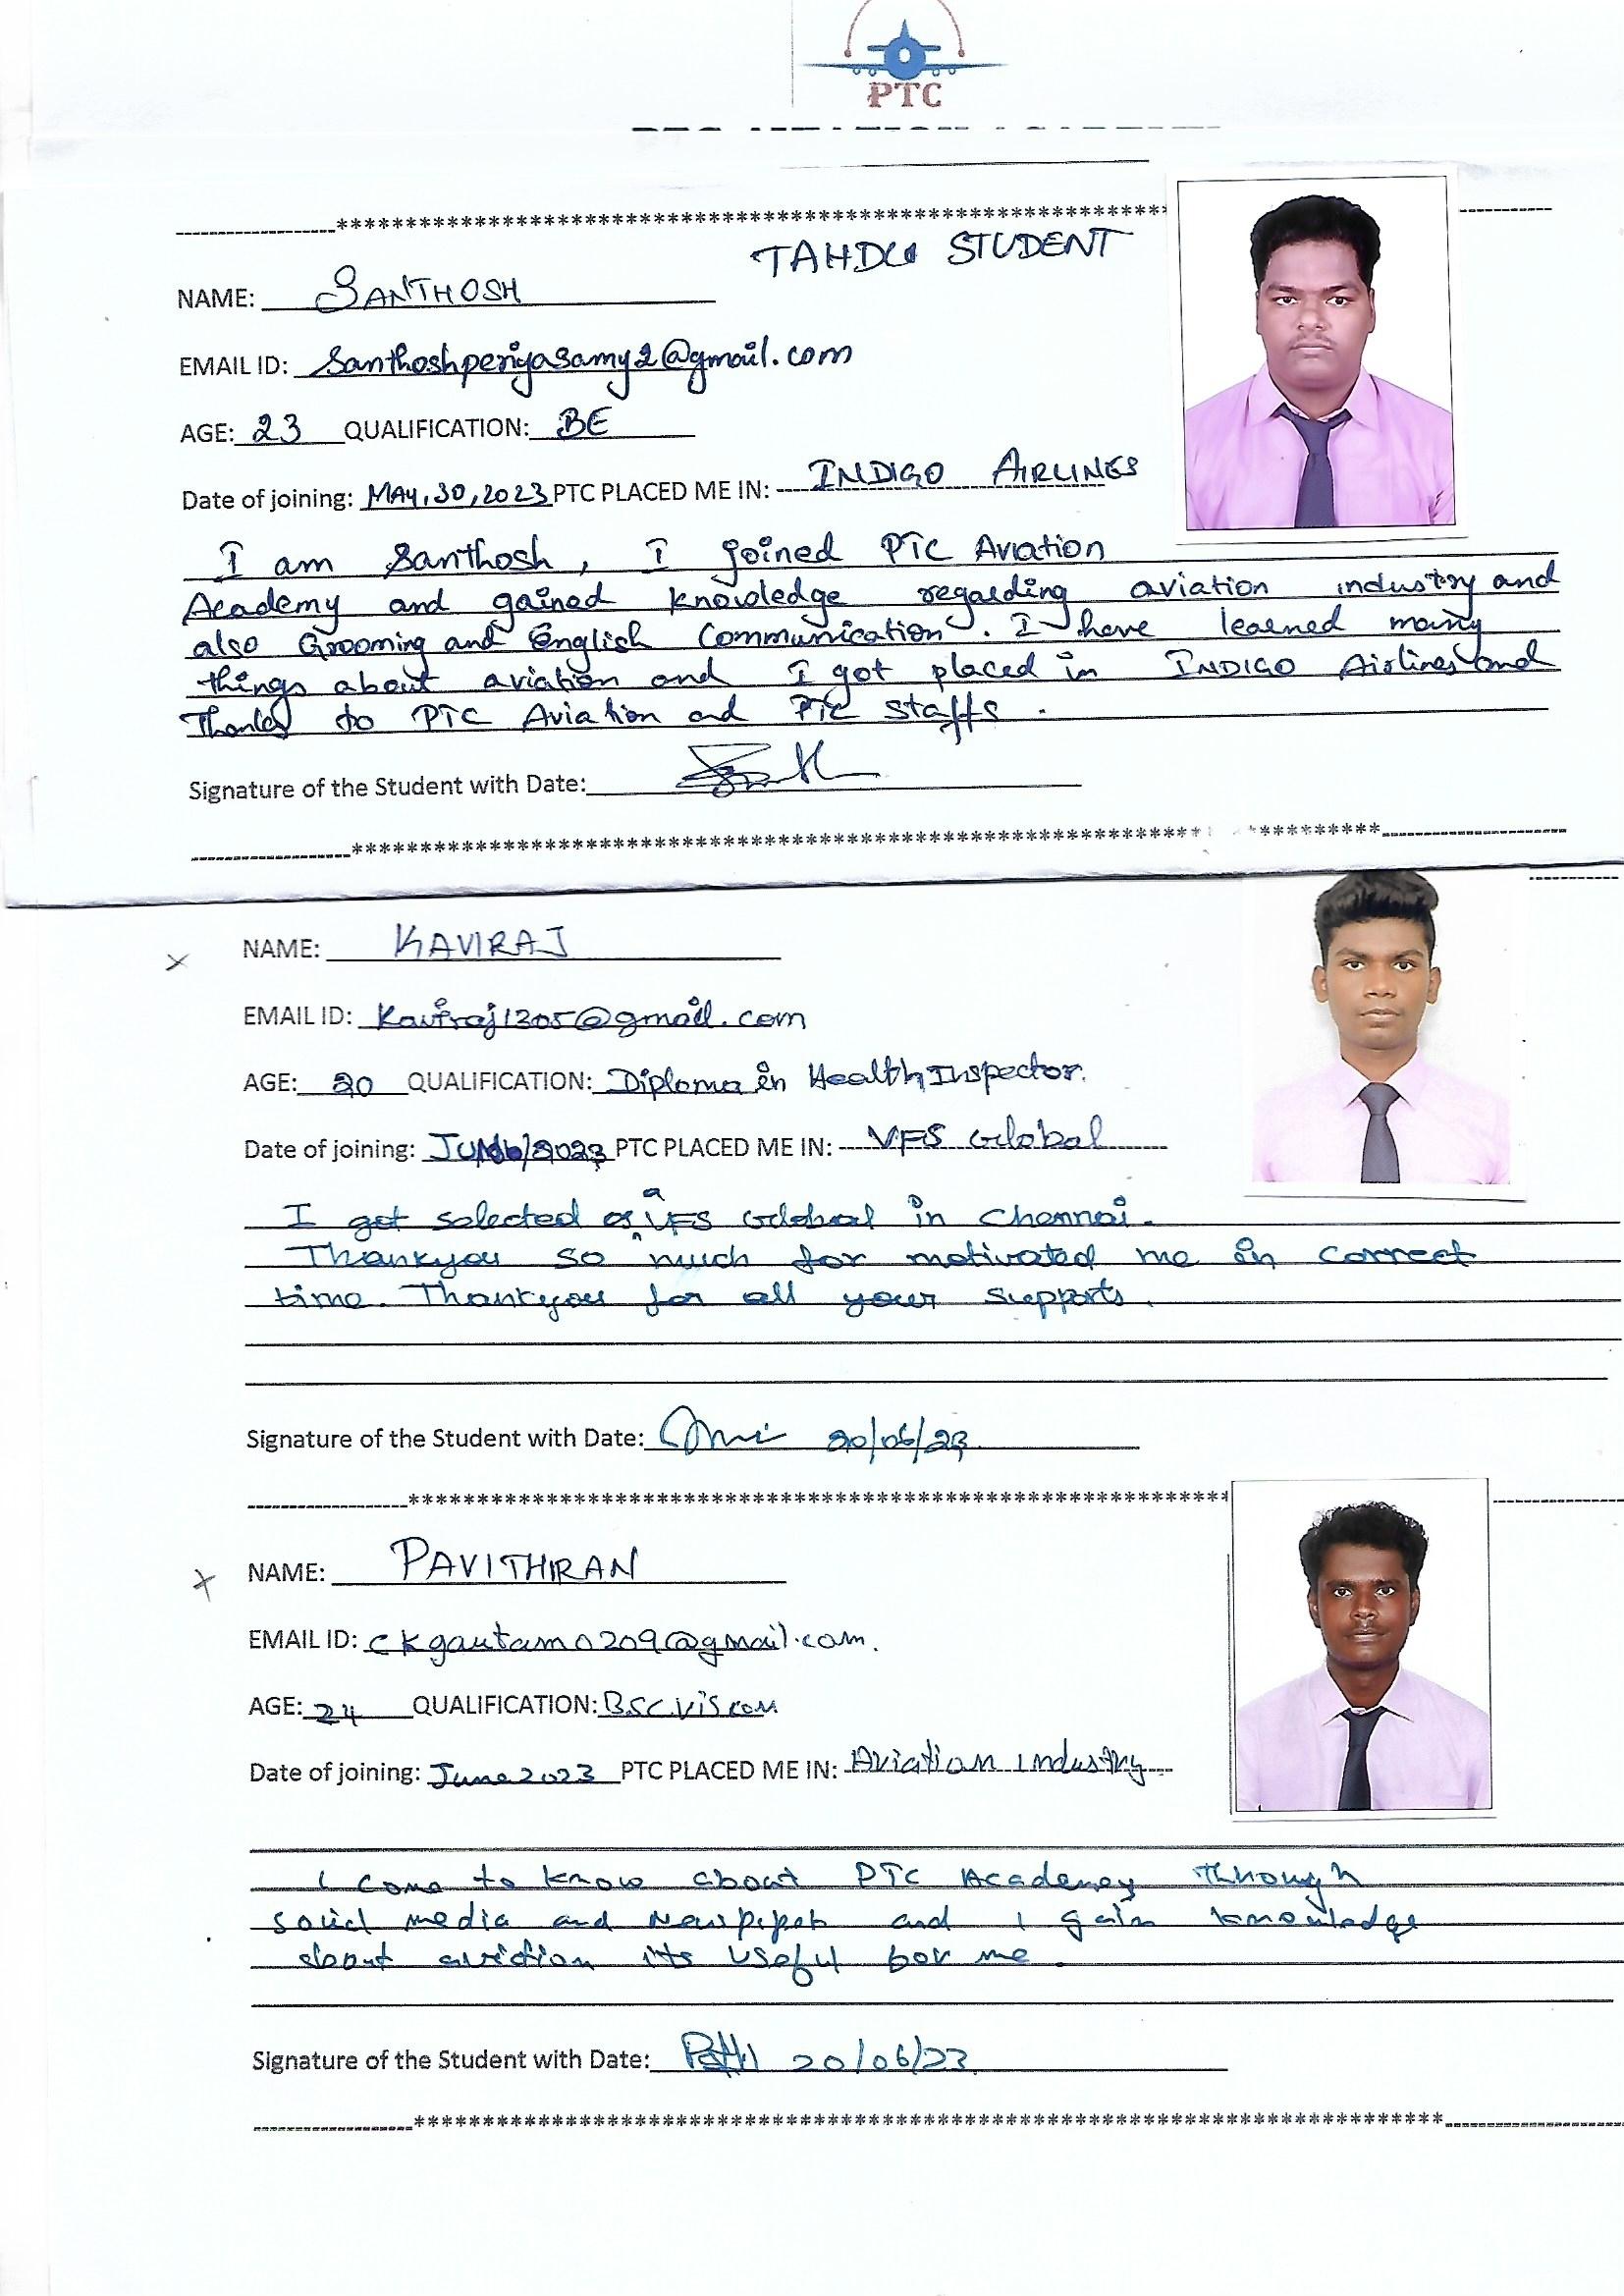 PTC
TAHDCO STUDENT
NAME: SANTHOSH
EMAIL ID: Santhoshperiyasamy2@gmail.com
AGE: 23 QUALIFICATION: BE
Date of joining: MAY,30,2023 PTC PLACED ME IN: INDIGO AIRLINES
I am Santhosh, I joined PTC Aviation
Academy and gained knowledge regarding aviation industry and
also Grooming and English Communication. I have learned many
things about aviation and I got placed in INDIGO Airlines and
Thanks to PTC Aviation and PTC staffs.
Signature of the Student with Date:
NAME: KAVIRAJ
EMAIL ID: Kaviraj1305@gmail.com
AGE: 20 QUALIFICATION: Diploma in Health Inspector.
Date of joining: 2023 PTC PLACED ME IN: VFS Global
I get selected a VFS Global in Chennai.
Thankyou so much for motivated me in correct
time. Thankyou for all your supports.
Signature of the Student with Date: 20/06/23
NAME: PAVITHIRAN
EMAIL ID: ckgautam0209@gmail.com.
AGE: 24 QUALIFICATION: BSC.VISCOM
Date of joining: June 2023 PTC PLACED ME IN: Aviation Industry
I come to know about PTC Academy through
social media and Newspaper and I gain knowledge
about aviation its useful for me.
Signature of the Student with Date: 20/06/23